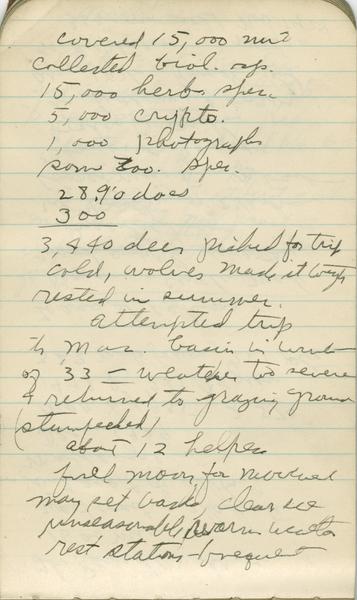 covered 15,000 mi²
collected biol. sp.
15,000 herb. spec.
5,000 crypto.
1,000 photographs
som zoo. spec.
2890 does
300
3,440 deer picked for trip
cold, wolves made it tough
rested in summer.
attempted trip
to Mac. basin in winter
of 33 – weather too severe
& returned to grazing ground
(stampeded)
about 12 helpers
full moon for
may set back, clear ice
unseasonable warm weather
rest stations frequent